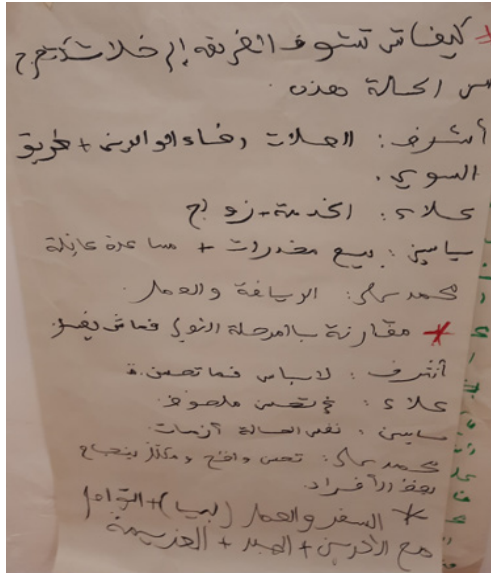 * كيفاش تشوف الطريقة إلي خلاتك تخرج
من الحالة هذه.
أشرف: الصلات رضاء الوالدين + طريق
السوي.
علاء: الخدمة - زواج
ياسين: بيع مخدرات + مساعدة عائلة
محمد علي: الرياضة والعمل.
* مقارنة بالمرحلة الأولى
أشرف: لاباس فما تحسن
علاء: تحسن ملحوظ
ياسين: نفس الحالة أزمات
محمد علي: تحسن واضح بنجاح
بعض الأفراد
* السفر والعمل (ليبيا) + التواصل
مع الآخرين + الصبر + العزيمة